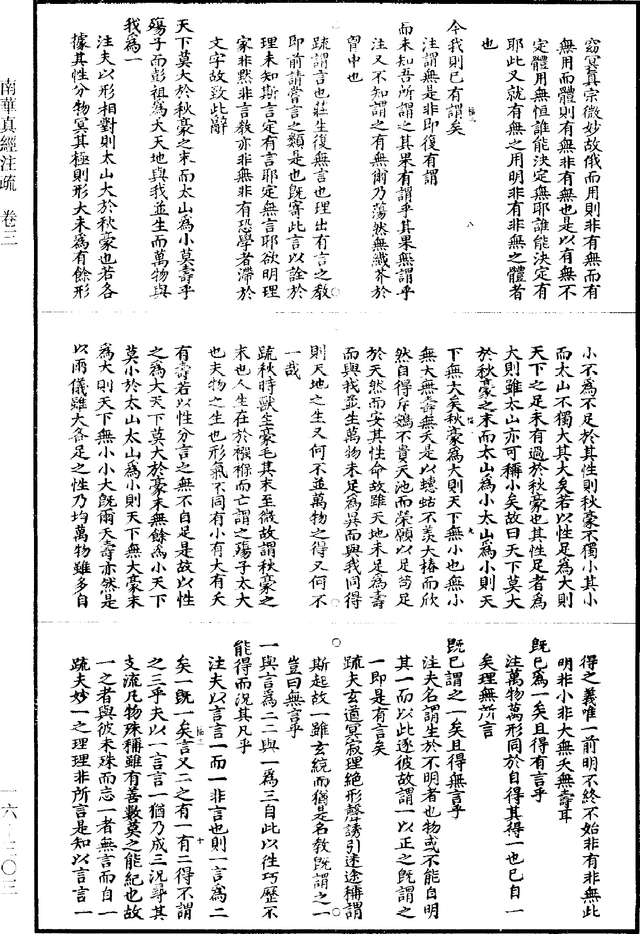 南華真經注疏 卷三
一六—三〇三
窈冥真宗微妙故俄而用則非有無而有
無用而體則有無非有無也是以有無不
定體用無恒誰能決定無耶誰能決定有
耶此又就有無之用明非有非無之體者
也
今我則已有謂矣
注謂無是非即復有謂
而未知吾所謂之其果有謂乎其果無謂乎
注又不知謂之有無爾乃蕩然無纖芥於
胷中也
疏謂言也莊生復無言也理出有言之教
即前請嘗言之類是也既寄此言以詮於
理未知斯言定有言耶定無言耶欲明理
家非默非言教亦非無非有恐學者滯於
文字故致此辭
天下莫大於秋豪之末而太山為小莫壽乎
殤子而彭祖為夭天地與我並生而萬物與
我為一
注夫以形相對則太山大於秋豪也若各
據其性分物冥其極則形大未為有餘形
小不為不足於其性則秋豪不獨小其小
而太山不獨大其大矣若以性足為大則
天下之足未有過於秋豪也其性足者為
大則雖太山亦可稱小矣故曰天下莫大
於秋豪之末而太山為小太山為小則天
下無大矣秋豪為大則天下無小也無小
無大無壽無夭是以蟪蛄不羨大椿而欣
然自得斥鴳不貴天池而榮願以足苟足
於天然而安其性命故雖天地未足為壽
而與我並生萬物未足為異而與我同得
則天地之生又何不並萬物之得又何不
一哉
疏秋時獸生豪毛其末至微故謂秋豪之
末也人生在於襁褓而亡謂之殤子太大
也夫物之生也形氣不同有小有大有夭
有壽若以性分言之無不自足是故以性
之為大天下莫大於豪末無餘為小天下
莫小於太山太山為小則天下無大豪末
為大則天下無小小大既爾夭壽亦然是
以兩儀雖大各足之性乃均萬物雖多自
得之義唯一前明不終不始非有非無此
明非小非大無夭無壽耳
既已為一矣且得有言乎
注萬物萬形同於自得其得一也已自一
矣理無所言
既已謂之一矣且得無言乎
注夫名謂生於不明者也物或不能自明
其一而以此逐彼故謂一以正之既謂之
一即是有言矣
疏夫玄道冥寂理絕形聲誘引迷途稱謂
斯起故一雖玄統而猶是名教既謂之一
豈曰無言乎
一與言為二二與一為三自此以往巧歷不
能得而況其凡乎
注夫以言言一而一非言也則一言為二
矣一既一矣言又二之有一有二得不謂
之三乎夫以一言言一猶乃成三況尋其
支流凡物殊稱雖有善數莫之能紀也故
一之者與彼未殊而忘一者無言而自一
疏夫妙一之理理非所言是知以言言一